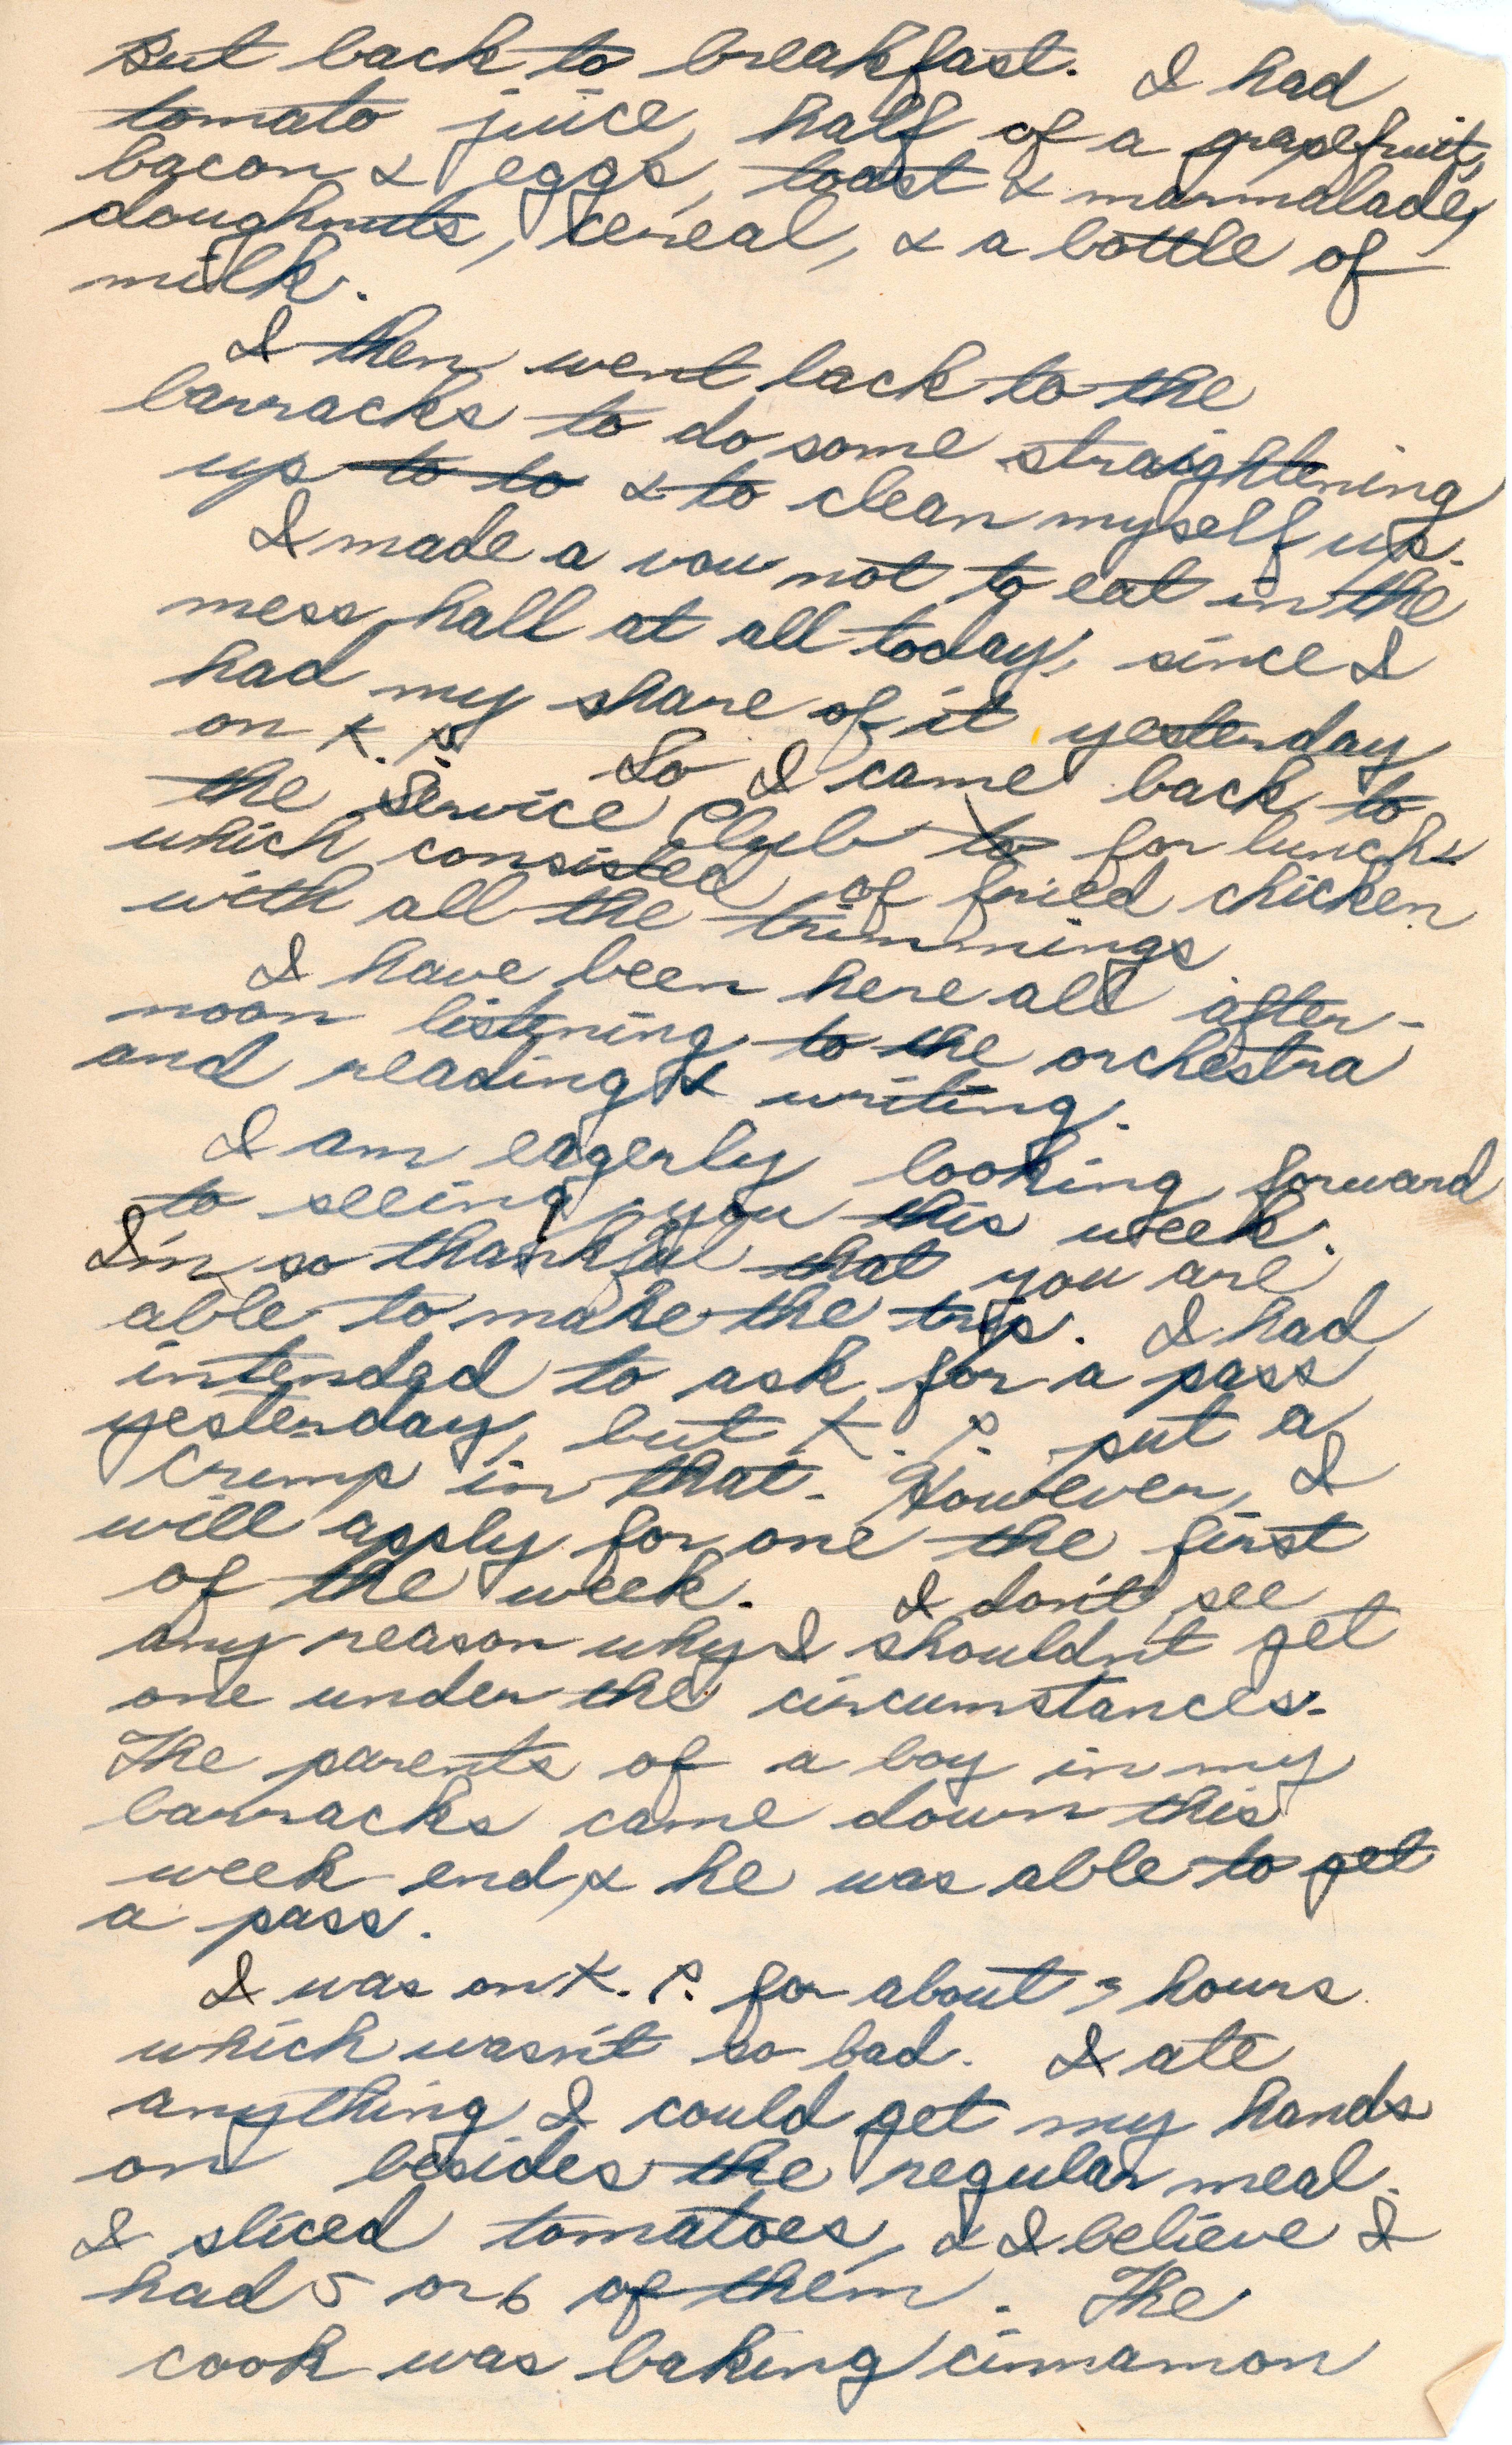 But back to breakfast. I had
tomato juice, half of a grapefruit,
bacon & eggs, toast & marmalade,
doughnuts, cereal, & a bottle of
milk.
I then went back to the
barracks to do some straightening
up to to & to clean myself up.
I made a vow not to eat in the
mess hall at all today, since I
had my share of it yesterday
on K.P. So I came back to
the Service Club to for lunch
which consisted of fried chicken
with all the trimmings.
I have been here all after-
noon listening to the orchestra
and reading & writing.
I am eagerly looking forward
to seeing you this week.
I'm so thankful that you are
able to make the trip. I had
intended to ask for a pass
yesterday, but K.P. put a
crimp in that. However, I
will apply for one the first
of the week. I don't see
any reason why I shouldn't get
one under the circumstances.
The parents of a boy in my
barracks came down this
week-end, & he was able to get
a pass.
I was on K.P. for about hours
which wasn't so bad. I ate
anything I could get my hands
on besides the regular meal.
I sliced tomatoes, & I believe I
had 5 or 6 of them. The
cook was baking cinnamon